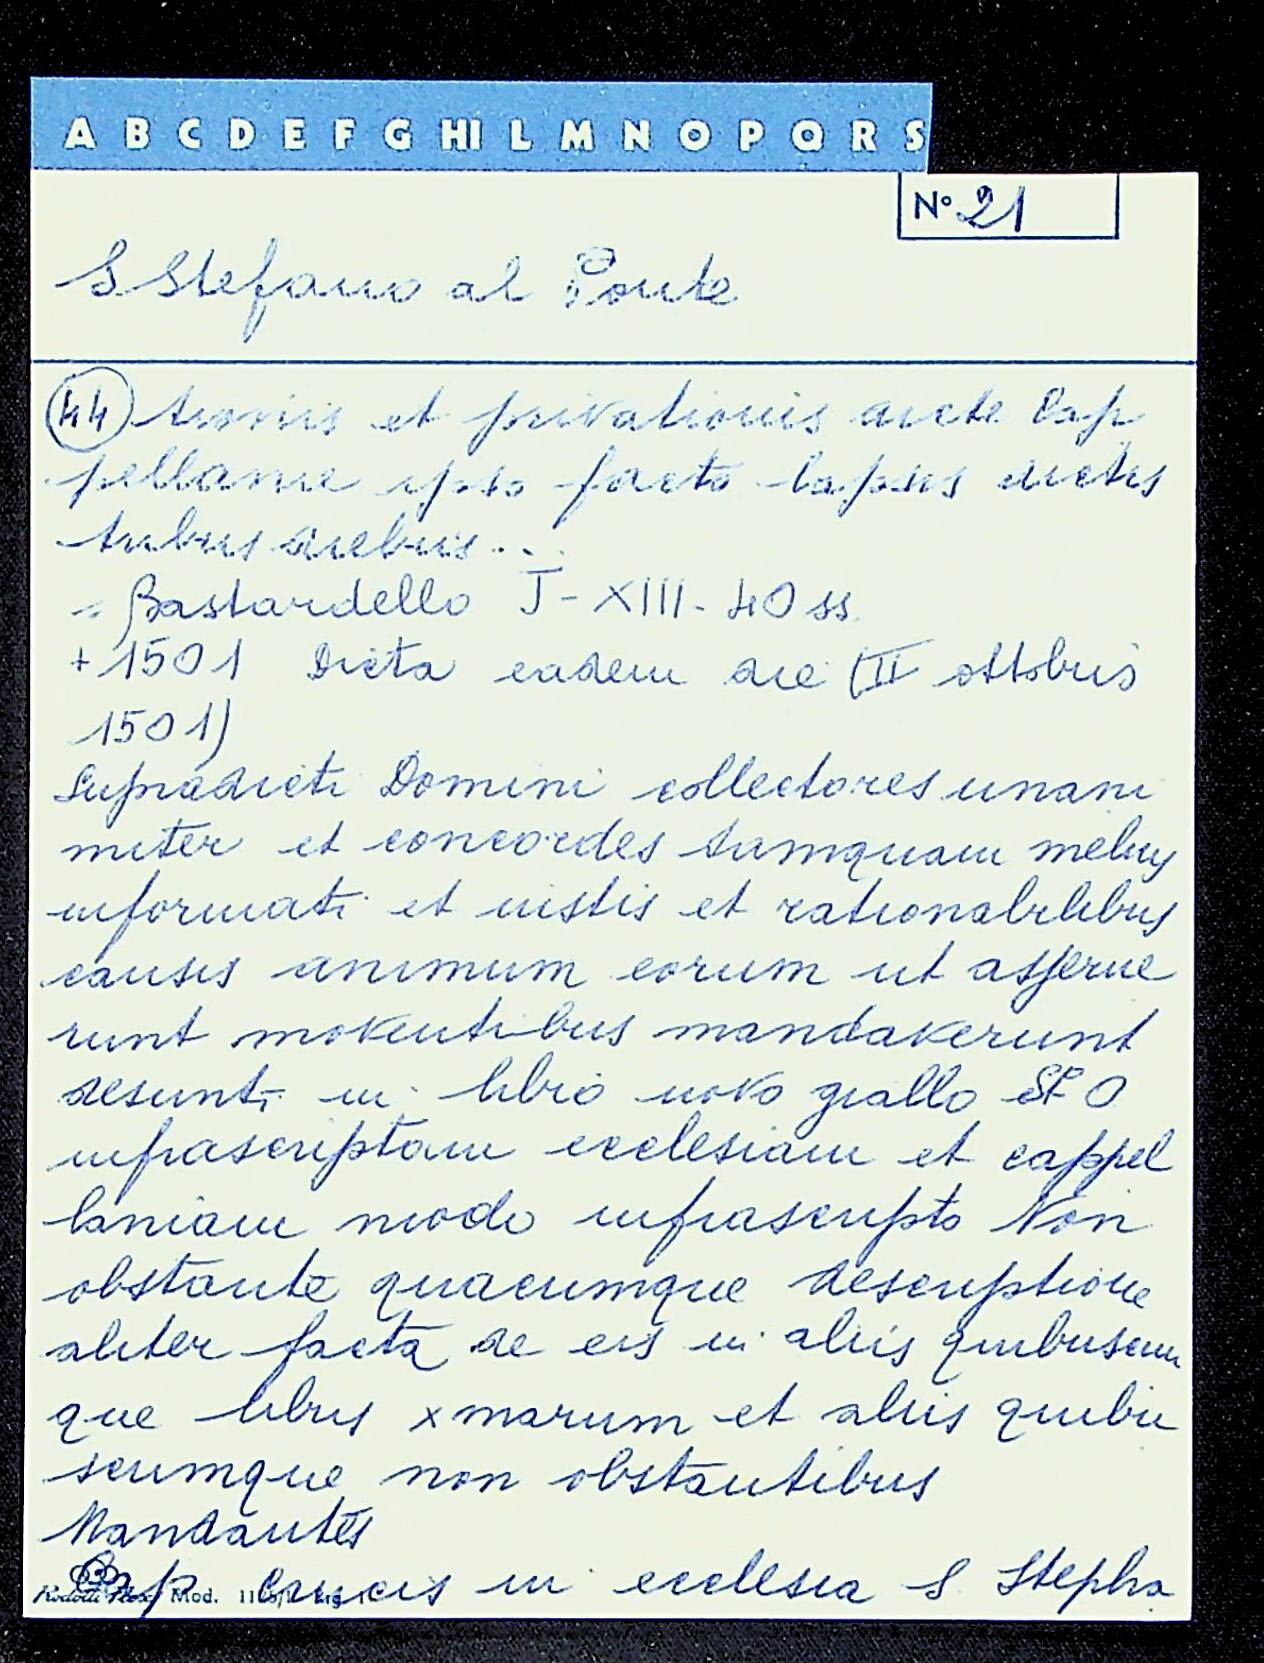 A B C D E F G HI L M N O P Q R S
N° 21
S Stefano al Ponte
44 tionis et privationis dicte Cap
pellanie ipso facto lapsis dictis
tribus diebus...
= Bastardello J - XIII - 40 ss.
+ 1501 Dicta eadem die (II ottobris
1501)
Supradicti Domini collectores unani
miter et concordes tamquam melius
informati et iustis et rationabilibus
causis animum eorum ut asserue
runt moventibus mandaverunt
desunti in libro novo giallo
infrascriptam ecclesiam et cappel
laniam modo infrascripto Non
obstante quacumque descriptione
aliter facta de eis in aliis quibuscum
que libris xmarum et aliis quibu
scumque non obstantibus
Mandantes
Cap. Crucis in ecclesia S Stepha
Mod.